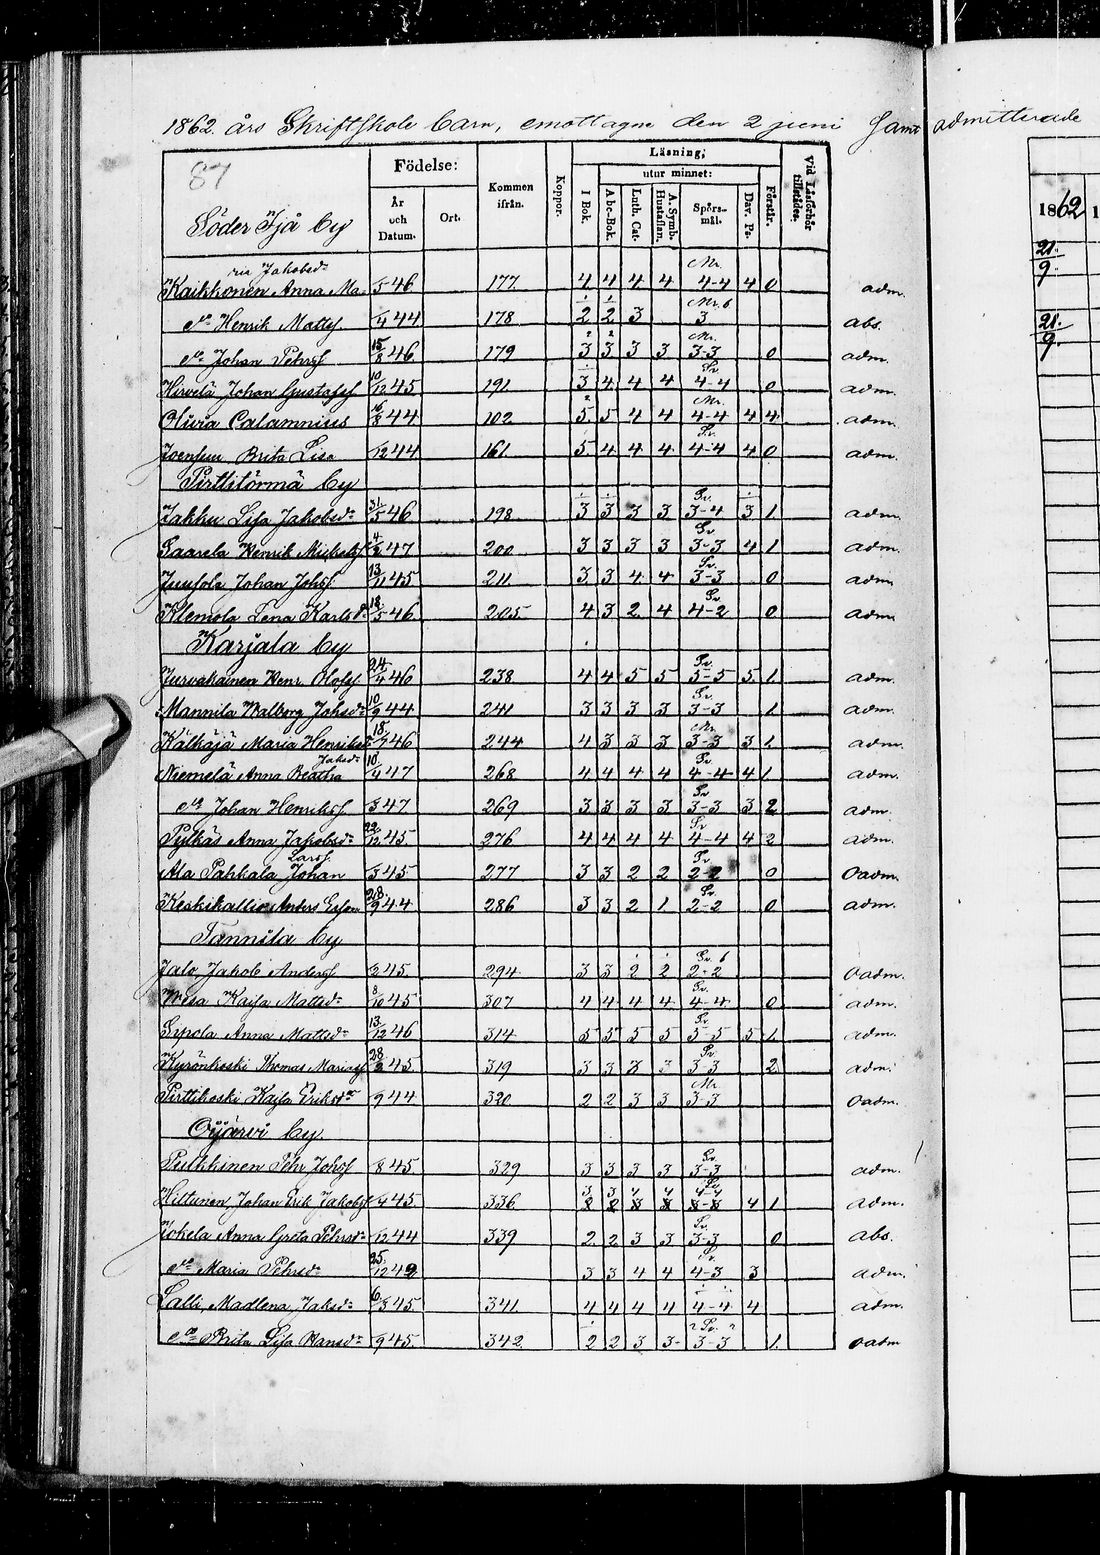 1862. års Skriftskole barn, emottagne den 2 juni Samt admitterade
87
Födelse:
År och Datum.
Ort.
Kommen ifrån.
Koppor.
Läsning;
utur minnet:
I Bok.
Abc-Bok.
Luth. Cat.
A. Symb. Hustaflan.
Spörs-mål.
Dav. Ps.
Förstår.
Vid Läsförhör tillstädes.
1862
Söder Ijå by
Jakobsd:
Kaikkonen Anna Ma. /5 46 177 4 4 4 4 4-4 4 0 adm.
Henrik Matts 4 44 178 2 2 3 3 abs.
Johan Pehrs 15/8 46 179 3 3 3 3 3-3 0 adm.
Hirvelä Johan Gustafs 10/12 45 191 3 4 4 4 4-4 0 adm.
Olivia Calamnius 16/8 44 102 5 5 4 4 4-4 4 4 adm.
Brita Lisa /12 44 161 5 4 4 4 4-4 4 0 adm.
Pirttitörmä by
Jakku Lisa Jakobsd: 31/5 46 198 3 3 3 3 3-4 3 1 adm.
Saarela Henrik Mickels 47 200 3 3 3 3 3-3 4 1 adm.
Juusola Johan Johs 13/11 45 211 3 3 4 4 3-3 0 adm
Klemola Lena Karlsd: 18/5 46 205 4 3 2 4 4-2 0 adm
Karjala by
Jurvakainen Henr. Olofs 24/4 46 238 4 4 5 5 5-5 5 1 adm.
Mannila Walborg Johsd: 10/9 44 241 3 3 3 3 3-3 1 adm.
Kälkäjä Maria Henriksd: 18/ 46 244 4 3 3 3 3-3 3 1 adm.
Jakobsd:
Niemelä Anna Beatha 10/4 47 268 4 4 4 4 4-4 4 1 adm.
Johan Henriks 3 47 269 3 3 3 3 3-3 3 2 adm.
Pylkäs Anna Jakobsd: 22/12 45 276 4 4 4 4 4-4 4 2 adm.
Lars
Ala Pahkala Johan /3 45 277 3 3 2 2 2-2 0 oadm.
Keskikallio Anders 28/9 44 286 3 3 2 1 2-2 0 adm.
Tannila by
Jalo, Jakob Anders 2 45 294 3 3 2 2 2-2 oadm.
Wesa Kajsa Mattsd: 8/10 45 307 4 4 4 4 4-4 0 adm.
Sipola Anna Mattsd: 13/12 46 314 5 5 5 5 5-5 5 1 adm.
Kyrönkoski Thomas Marias 28/2 45 319 3 3 3 3 3-3 2 adm.
Pirttikoski Kajsa Eriksd: 9 44 320 2 2 3 3 3-3 oadm.
Oijärvi by
Pulkkinen Pehr Johs 8 45 329 3 3 3 3 3-3 adm.
Hiltunen, Johan Erik Jakobs 4 45 336 4 1 adm.
Jokela Anna Greta Pehrsd: /12 44 339 2 2 3 3 3-3 0 abs.
Maria Pehrsd: 25/12 42 3 3 4 4 4-3 3 adm.
Lalli, Madlena Jaksd: 6/3 45 341 4 4 4 4 4-4 4 adm.
Brita Lisa Hansd: /9 45 342 2 2 3 3 3-3 1 oadm
21/9
21/9